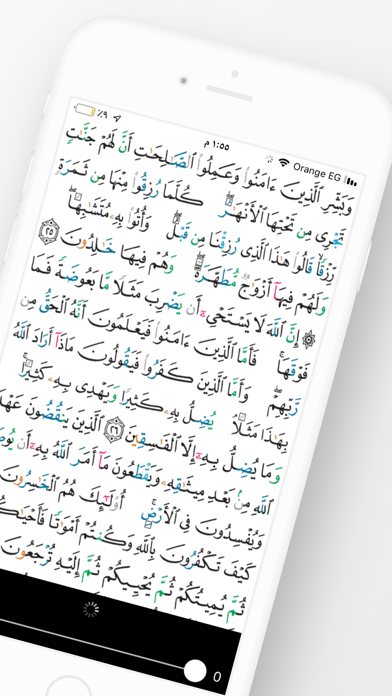 Orange EG
١:٥٥ م
٩٪
وَبَشِّرِ ٱلَّذِينَ ءَامَنُوا۟ وَعَمِلُوا۟ ٱلصَّـٰلِحَـٰتِ أَنَّ لَهُمْ جَنَّـٰتٍ
تَجْرِى مِن تَحْتِهَا ٱلْأَنْهَـٰرُ ۖ كُلَّمَا رُزِقُوا۟ مِنْهَا مِن ثَمَرَةٍ
رِّزْقًا قَالُوا۟ هَـٰذَا ٱلَّذِى رُزِقْنَا مِن قَبْلُ ۖ وَأُتُوا۟ بِهِۦ مُتَشَـٰبِهًا ۖ
وَلَهُمْ فِيهَآ أَزْوَٰجٌ مُّطَهَّرَةٌ ۖ وَهُمْ فِيهَا خَـٰلِدُونَ ٢٥
۞ إِنَّ ٱللَّهَ لَا يَسْتَحْىِۦٓ أَن يَضْرِبَ مَثَلًا مَّا بَعُوضَةً فَمَا
فَوْقَهَا ۚ فَأَمَّا ٱلَّذِينَ ءَامَنُوا۟ فَيَعْلَمُونَ أَنَّهُ ٱلْحَقُّ مِن
رَّبِّهِمْ ۖ وَأَمَّا ٱلَّذِينَ كَفَرُوا۟ فَيَقُولُونَ مَاذَآ أَرَادَ ٱللَّهُ
بِهَـٰذَا مَثَلًا ۘ يُضِلُّ بِهِۦ كَثِيرًا وَيَهْدِى بِهِۦ كَثِيرًا ۚ
وَمَا يُضِلُّ بِهِۦٓ إِلَّا ٱلْفَـٰسِقِينَ ٢٦ ٱلَّذِينَ يَنقُضُونَ عَهْدَ
ٱللَّهِ مِنۢ بَعْدِ مِيثَـٰقِهِۦ وَيَقْطَعُونَ مَآ أَمَرَ ٱللَّهُ بِهِۦٓ أَن
وَيُفْسِدُونَ فِى ٱلْأَرْضِ ۚ أُو۟لَـٰٓئِكَ هُمُ ٱلْخَـٰسِرُونَ
كَيْفَ تَكْفُرُونَ بِٱللَّهِ وَكُنتُمْ أَمْوَٰتًا فَأَحْيَـٰكُمْ
ثُمَّ يُمِيتُكُمْ ثُمَّ يُحْيِيكُمْ ثُمَّ إِلَيْهِ تُرْجَعُونَ
0